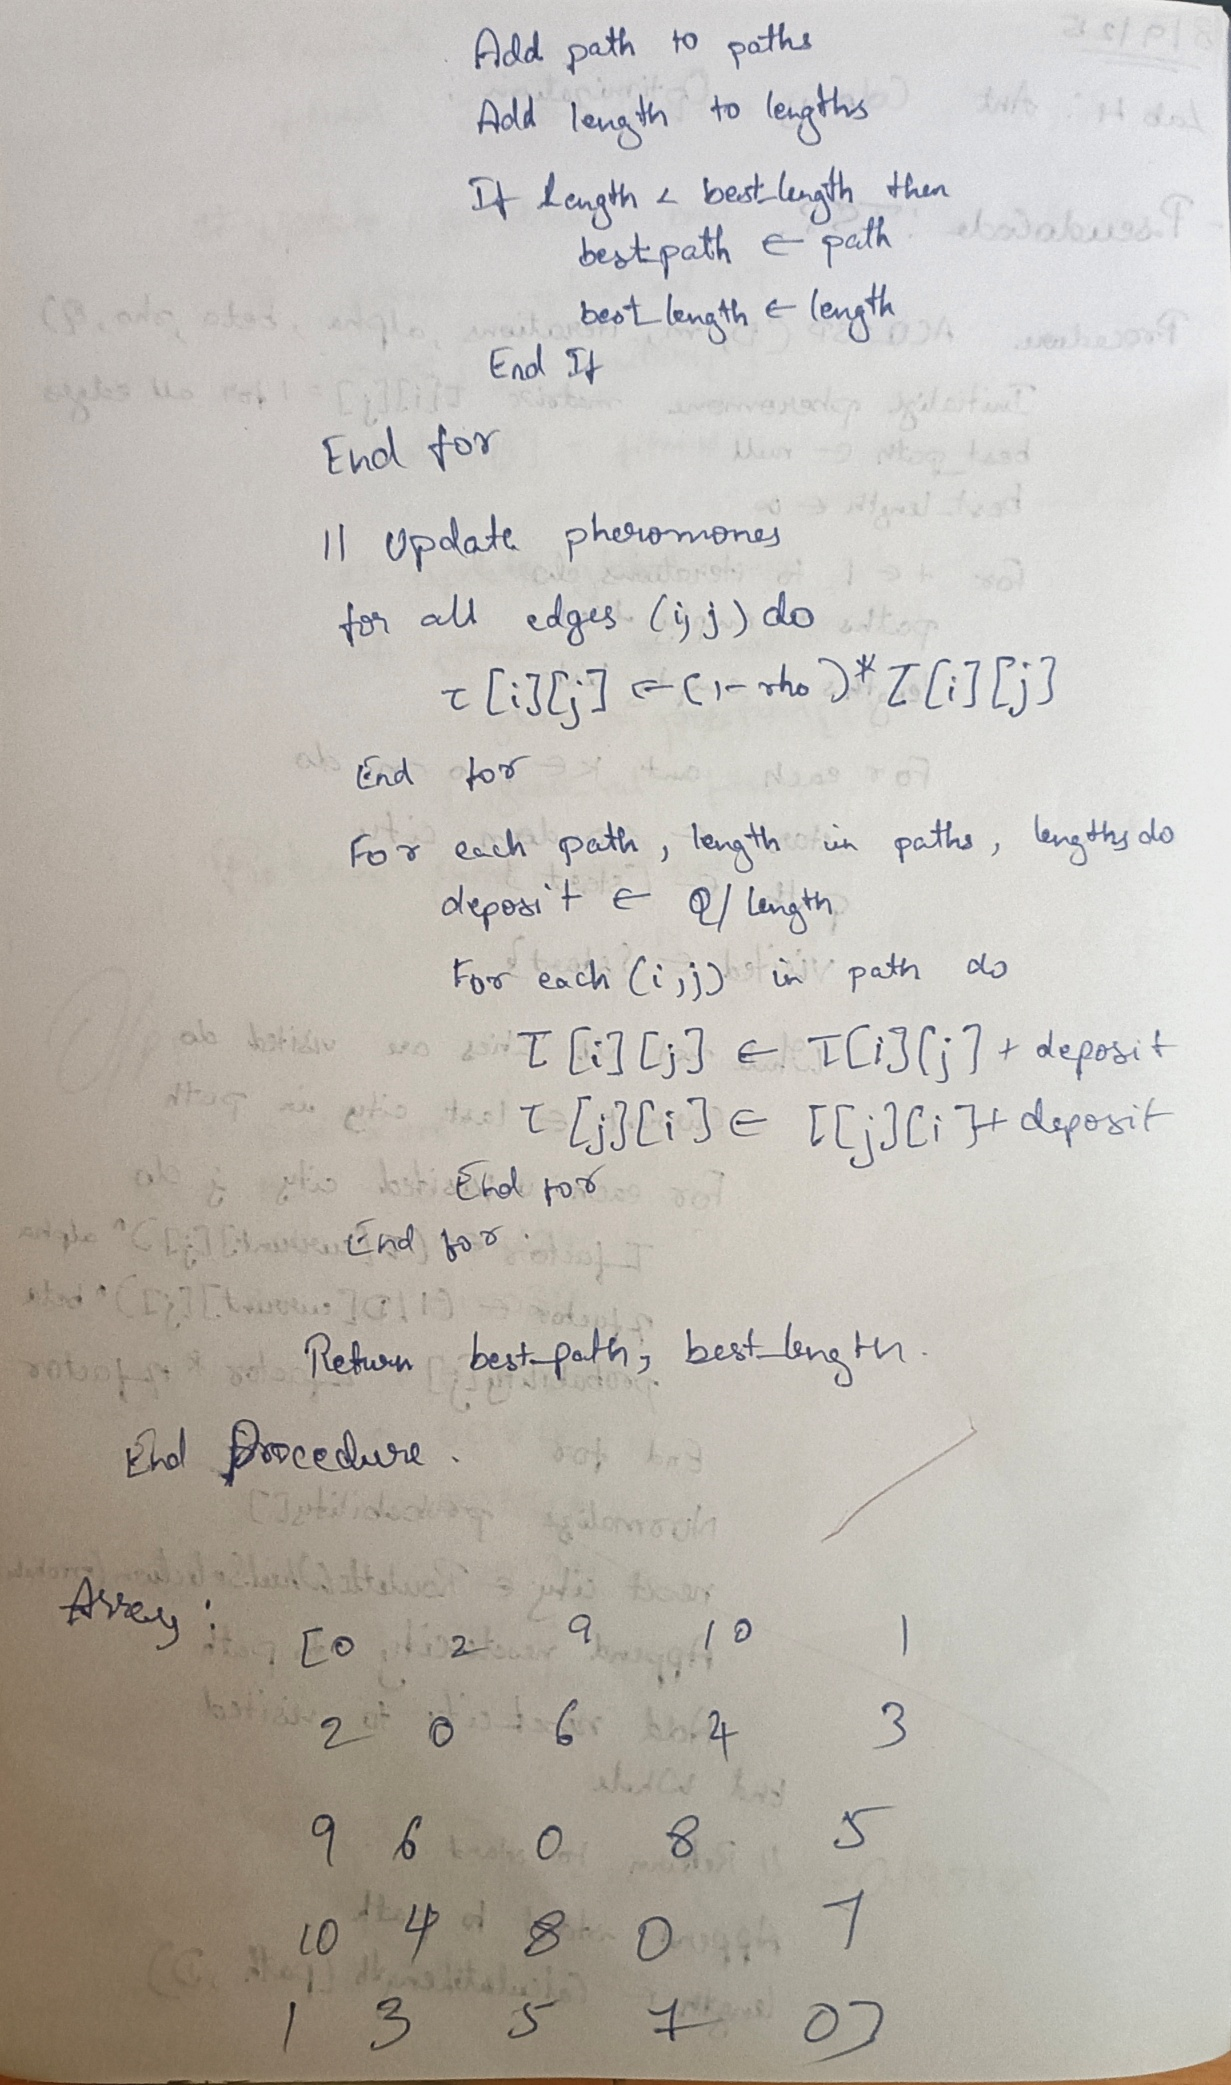 Add path to paths
Add length to lengths
If length < best_length then
best_path ← path
best_length ← length
End If
End for
// Update pheromones
for all edges (i,j) do
τ[i][j] ← (1-rho)*τ[i][j]
End for
For each path, length in paths, lengths do
deposit ← Q/length
For each (i,j) in path do
τ[i][j] ← τ[i][j] + deposit
τ[j][i] ← τ[j][i] + deposit
End for
End for
Return best_path, best_length.
End Procedure.
Array:
[0 2 9 10 1
2 0 6 4 3
9 6 0 8 5
10 4 8 0 7
1 3 5 7 0]